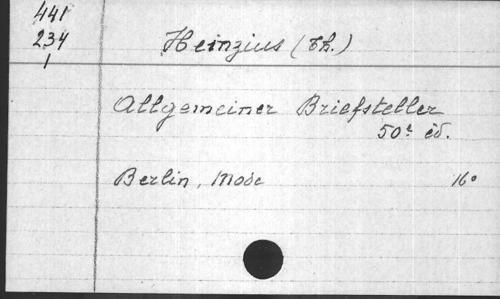 441
234
1
Heinzius (Th.)
Allgemeiner Briefsteller
50e éd.
Berlin, Mode
16°